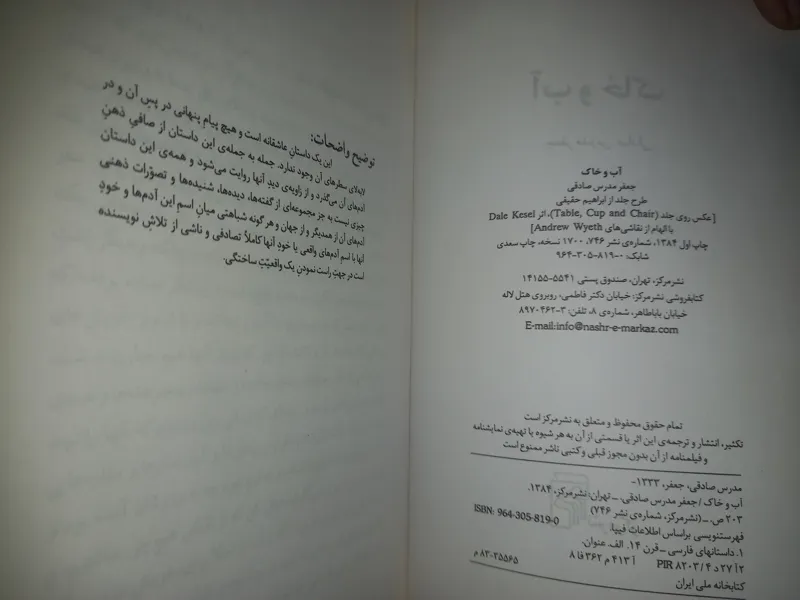 آب و خاک
جعفر مدرس صادقی
طرح جلد از ابراهیم حقیقی
[عکس روی جلد (Table, Cup and Chair)، اثر Dale Kesel
با الهام از نقاشی‌های Andrew Wyeth]
چاپ اول ۱۳۸۴، شماره‌ی نشر ۷۴۶، ۱۷۰۰ نسخه، چاپ سعدی
شابک: ۰-۸۱۹-۳۰۵-۹۶۴
نشرمرکز، تهران، صندوق پستی ۵۵۴۱-۱۴۱۵۵
کتابفروشی نشرمرکز: خیابان دکتر فاطمی، روبروی هتل لاله
خیابان باباطاهر، شماره‌ی ۸، تلفن: ۳-۸۹۷۰۴۶۲
E-mail:info@nashr-e-markaz.com
تمام حقوق محفوظ و متعلق به نشرمرکز است
تکثیر، انتشار و ترجمه‌ی این اثر یا قسمتی از آن به هر شیوه یا تهیه‌ی نمایشنامه
و فیلمنامه از آن بدون مجوز قبلی و کتبی ناشر ممنوع است
مدرس صادقی، جعفر، ۱۳۳۳-
آب و خاک / جعفر مدرس صادقی. ــ تهران: نشرمرکز، ۱۳۸۴.
۲۰۳ ص. ــ (نشرمرکز، شماره‌ی نشر ۷۴۶)
ISBN: 964-305-819-0
فهرستنویسی براساس اطلاعات فیپا.
۱. داستانهای فارسی ــ قرن ۱۴. الف. عنوان.
۲آ ۲۷ د / ۸۲۰۳ PIR ۴ آ ۴۱۳ م ۳۶۲ فا ۸
کتابخانه ملی ایران ۸۳-۳۵۵۶۵ م
توضیح واضحات:
این یک داستانِ عاشقانه است و هیچ پیامِ پنهانی در پسِ آن و در
لابه‌لای سطرهای آن وجود ندارد. جمله به جمله‌ی این داستان از صافیِ ذهنِ
آدم‌های آن می‌گذرد و از زاویه‌ی دیدِ آنها روایت می‌شود و همه‌ی این داستان
چیزی نیست به جز مجموعه‌ای از گفته‌ها، دیده‌ها، شنیده‌ها و تصوّراتِ ذهنیِ
آدم‌های آن از همدیگر و از جهان و هر گونه شباهتی میانِ اسمِ این آدم‌ها و خودِ
آنها با اسمِ آدم‌های واقعی یا خودِ آنها کاملاً تصادفی و ناشی از تلاشِ نویسنده
است در جهتِ راست نمودنِ یک واقعیّتِ ساختگی.